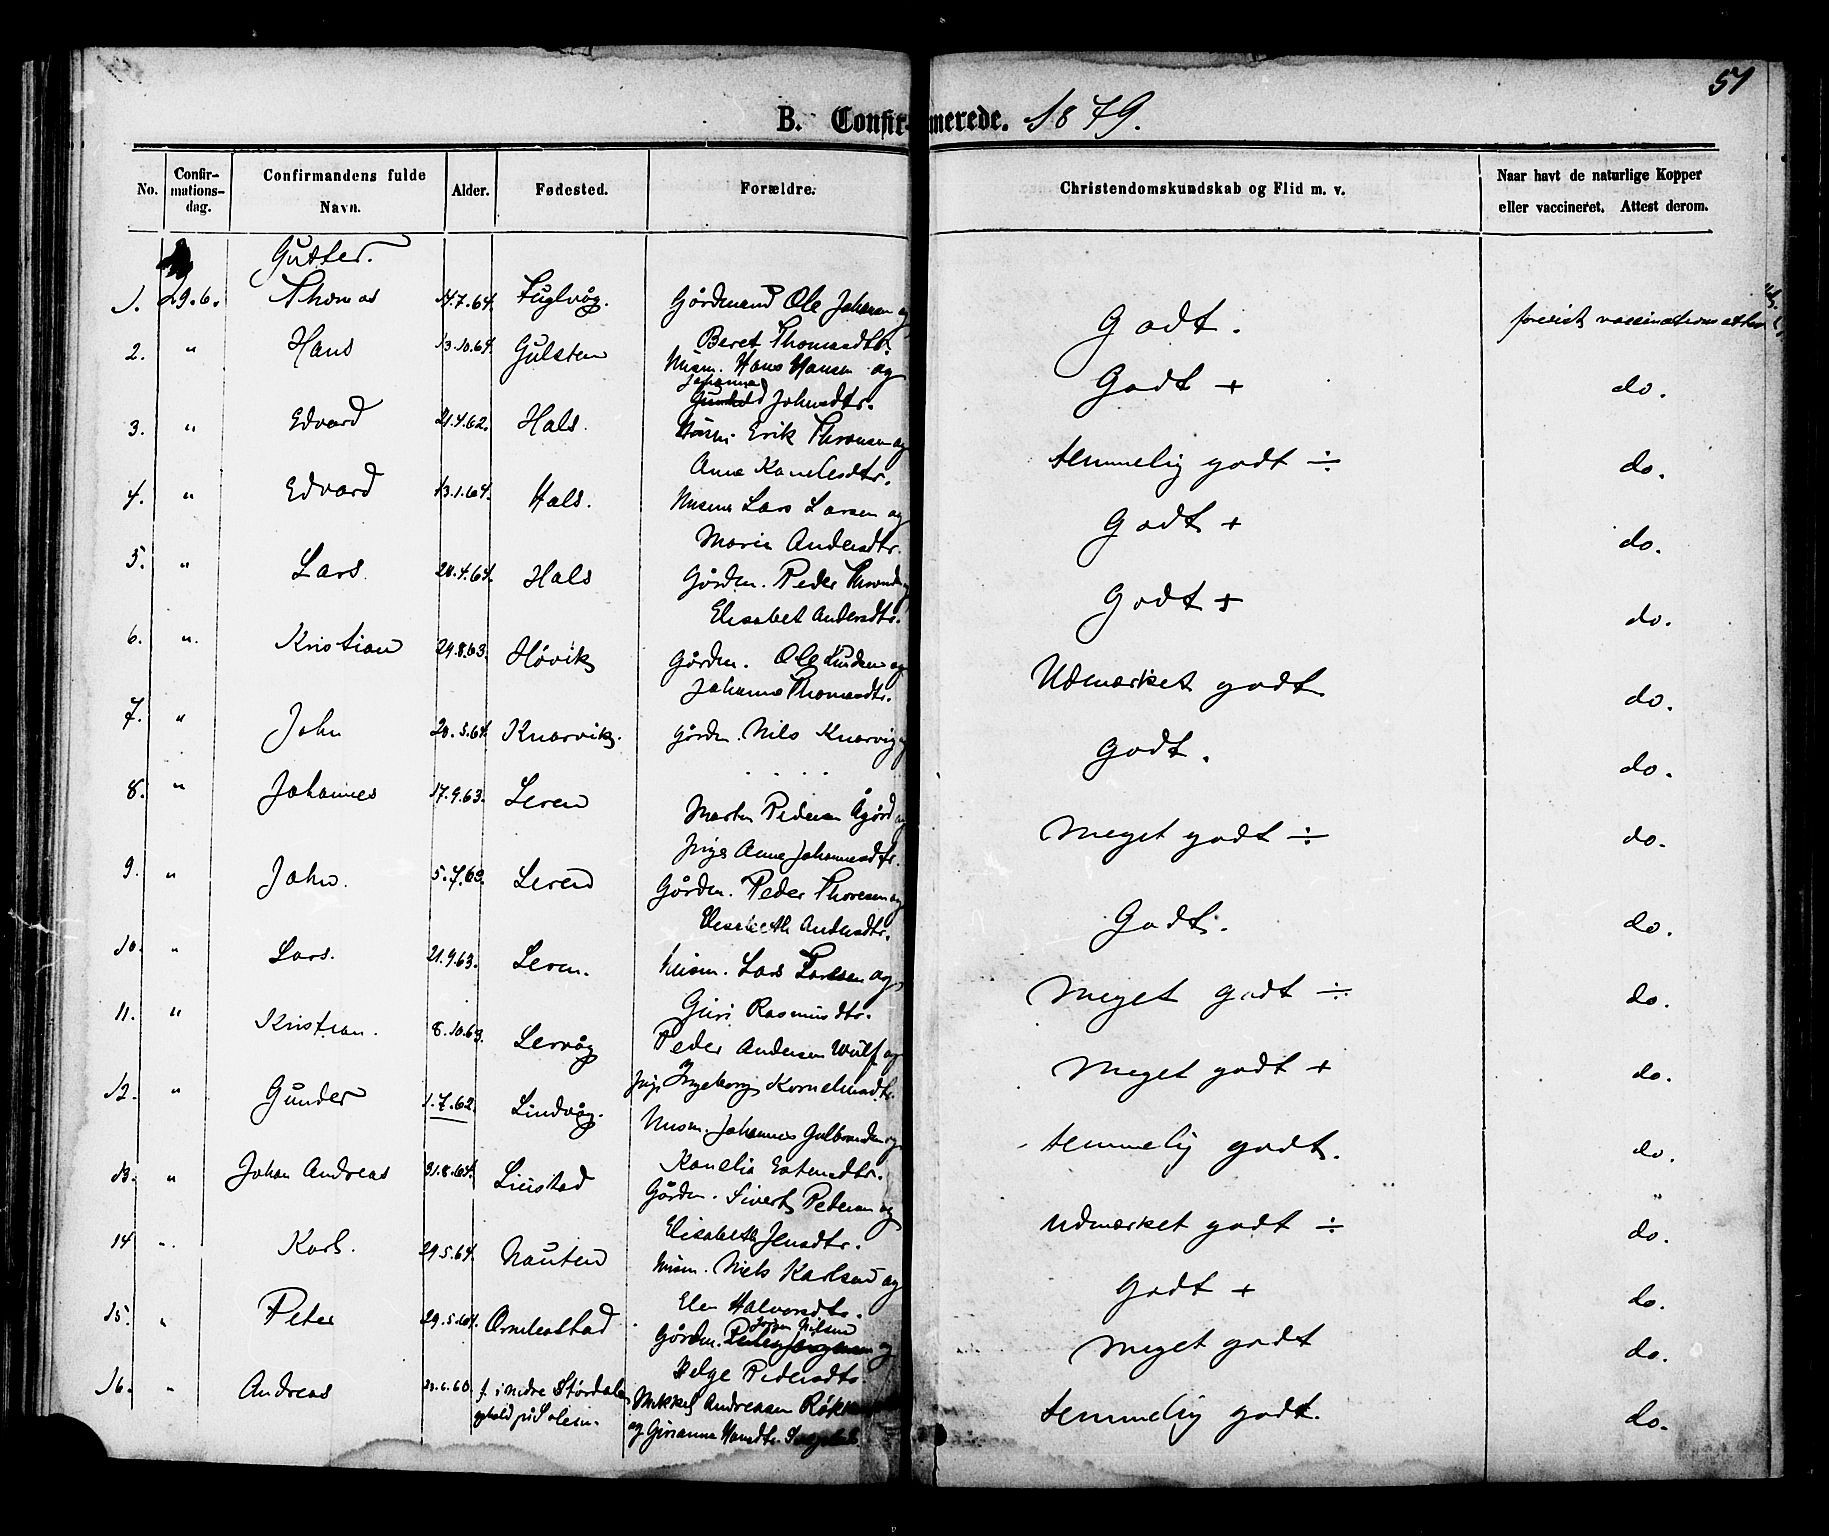 51
B. Confirmerede. 1879.
No. Confirmationsdag. Confirmandens fulde Navn. Alder. Fødested. Forældre. Christendomskundskab og Flid m. v. Naar havt de naturlige Kopper eller vaccineret. Attest derom.
Gutter.
1. 29.6. Thomas 14.7.64. Fuglvåg. Gårdmand Ole Johansen og
Beret Thomasdtr. Godt.
2. " Hans 13.10.64. Gulsten Husm. Hans Hansen og
Johanna Johnsdtr. Godt + do.
3. " Edvard 21.4.62. Hals. Husm. Erik Thronsen og
Anne Kanelesdtr. temmelig godt ÷ do.
4. " Edvard 13.1.64. Hals. Husm. Lars Larsen og
Marie Andersdtr. Godt + do.
5. " Lars 20.4.64. Hals Gårdm. Peder
Elisabet Andersdtr. Godt + do.
6. " Kristian 29.8.63. Høvik Gårdm. Ole Knudsen og
Johanna Thomasdtr. Udmærket godt do.
7. " John 20.5.64. Knarvik. Gårdm. Nils Knarvig og
. . . . Godt. do.
8. " Johannes 17.9.63. Leren Morten Pedersen Øgård og
Anne Johannesdtr. Meget godt ÷ do.
9. " John. 5.7.63. Leren Gårdm. Peder Thoresen og
Elisabeth Andersdtr. Godt. do.
10. " Lars. 21.9.63. Leren. Husm. Lars Larsen og
Guri Rasmusdtr. Meget godt ÷ do.
11. " Kristian. 8.10.63. Lervåg Peder Andersen Wulf og
Ingeborg Kornelusdtr. Meget godt + do.
12. " Gunder 1.7.62. Lindvåg. Husm. Johannes Gulbrandsen og
Kanelia Estensdtr. temmelig godt. do.
"
13. " Johan Andreas 31.8.64. Liestad Gårdm. Sivert Pedersen og
Elisabeth Jensdtr. Udmærket godt ÷ do.
14 " Karl. 29.5.64. Nauten Husm. Niels Karlsen og
Elen Halvorsdtr. Godt + do.
15. " Peter 29.5.64. Ørnleostad Gårdm. Jørgen Nilsen og
Helge Pedersdtr Meget godt do.
16. " Andreas f. i nedre Størdalen Mikkel Andreassen
ophold på Solem. og Girianna Hansdtr. temmelig godt. do.